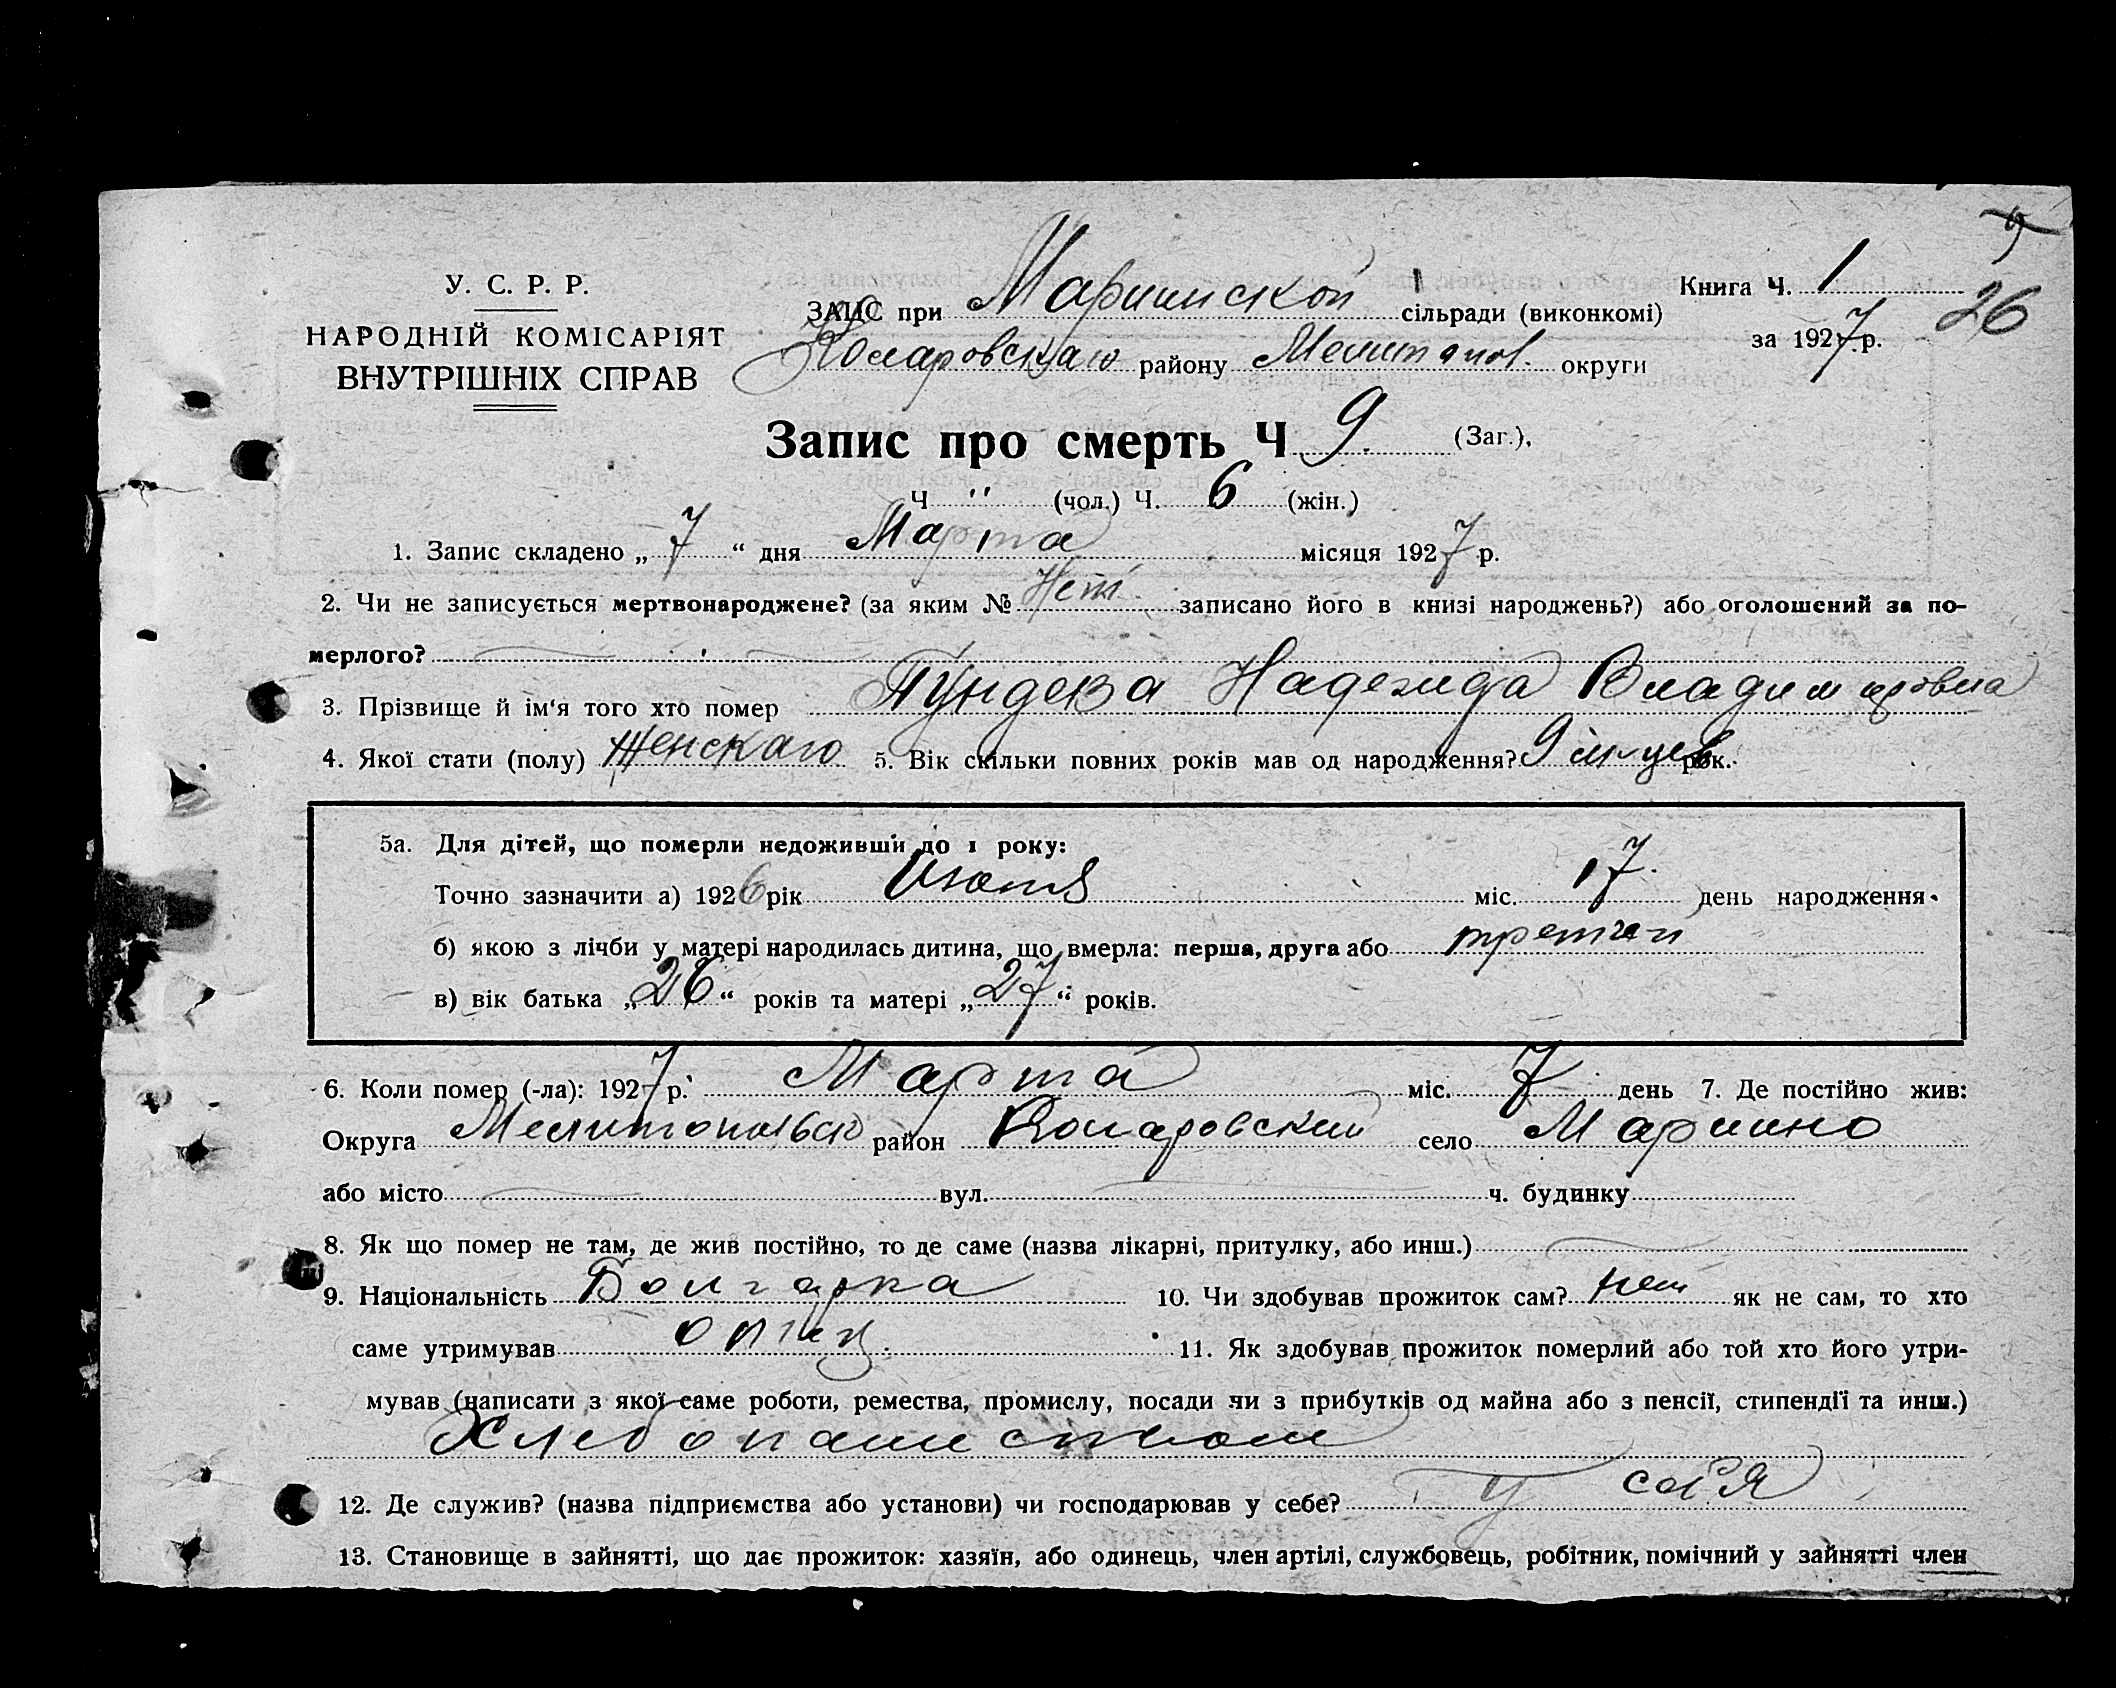 26
У. С. Р. Р.
НАРОДНІЙ КОМІСАРІЯТ
ВНУТРІШНІХ СПРАВ
ЗАЦС при Мариинской сільради (виконкомі)
Комаровскаго району Мелитопол. округи
Книга Ч. 1
за 1927 р.
Запис про смерть Ч 9. (Заг.),
Ч " (чол.) Ч. 6 (жін.)
1. Запис складено „ 7 “ дня Марта місяця 1927 р.
2. Чи не записується мертвонароджене? (за яким № Нет записано його в книзі народжень?) або оголошений за по-
мерлого?
3. Прізвище й ім‘я того хто помер Пундева Надежда Владимировна
4. Якої стати (полу) Женскаго 5. Вік скільки повних років мав од народження? 9 м-цев рок.
5а. Для дітей, що померли недоживши до 1 року:
Точно зазначити а) 1926 рік міс. 17. день народження.
б) якою з лічби у матері народилась дитина, що вмерла: перша, друга або третия
в) вік батька „ 26 “ років та матері „ 27 “ років.
6. Коли помер (-ла): 1927 р. Марта міс. 7 день 7. Де постійно жив:
Округа Мелитопольск район Комаровский село Мариино
або місто вул. ч. будинку
8. Як що помер не там, де жив постійно, то де саме (назва лікарні, притулку, або инш.)
9. Національність Болгарка 10. Чи здобував прожиток сам? нет як не сам, то хто
саме утримував отец. 11. Як здобував прожиток померлий або той хто його утри-
мував (написати з якої саме роботи, ремества, промислу, посади чи з прибутків од майна або з пенсії, стипендії та инш.)
Хлебопашеством
12. Де служив? (назва підприємства або установи) чи господарював у себе? у себя
13. Становище в зайнятті, що дає прожиток: хазяїн, або одинець, член артілі, службовець, робітник, помічний у зайнятті член